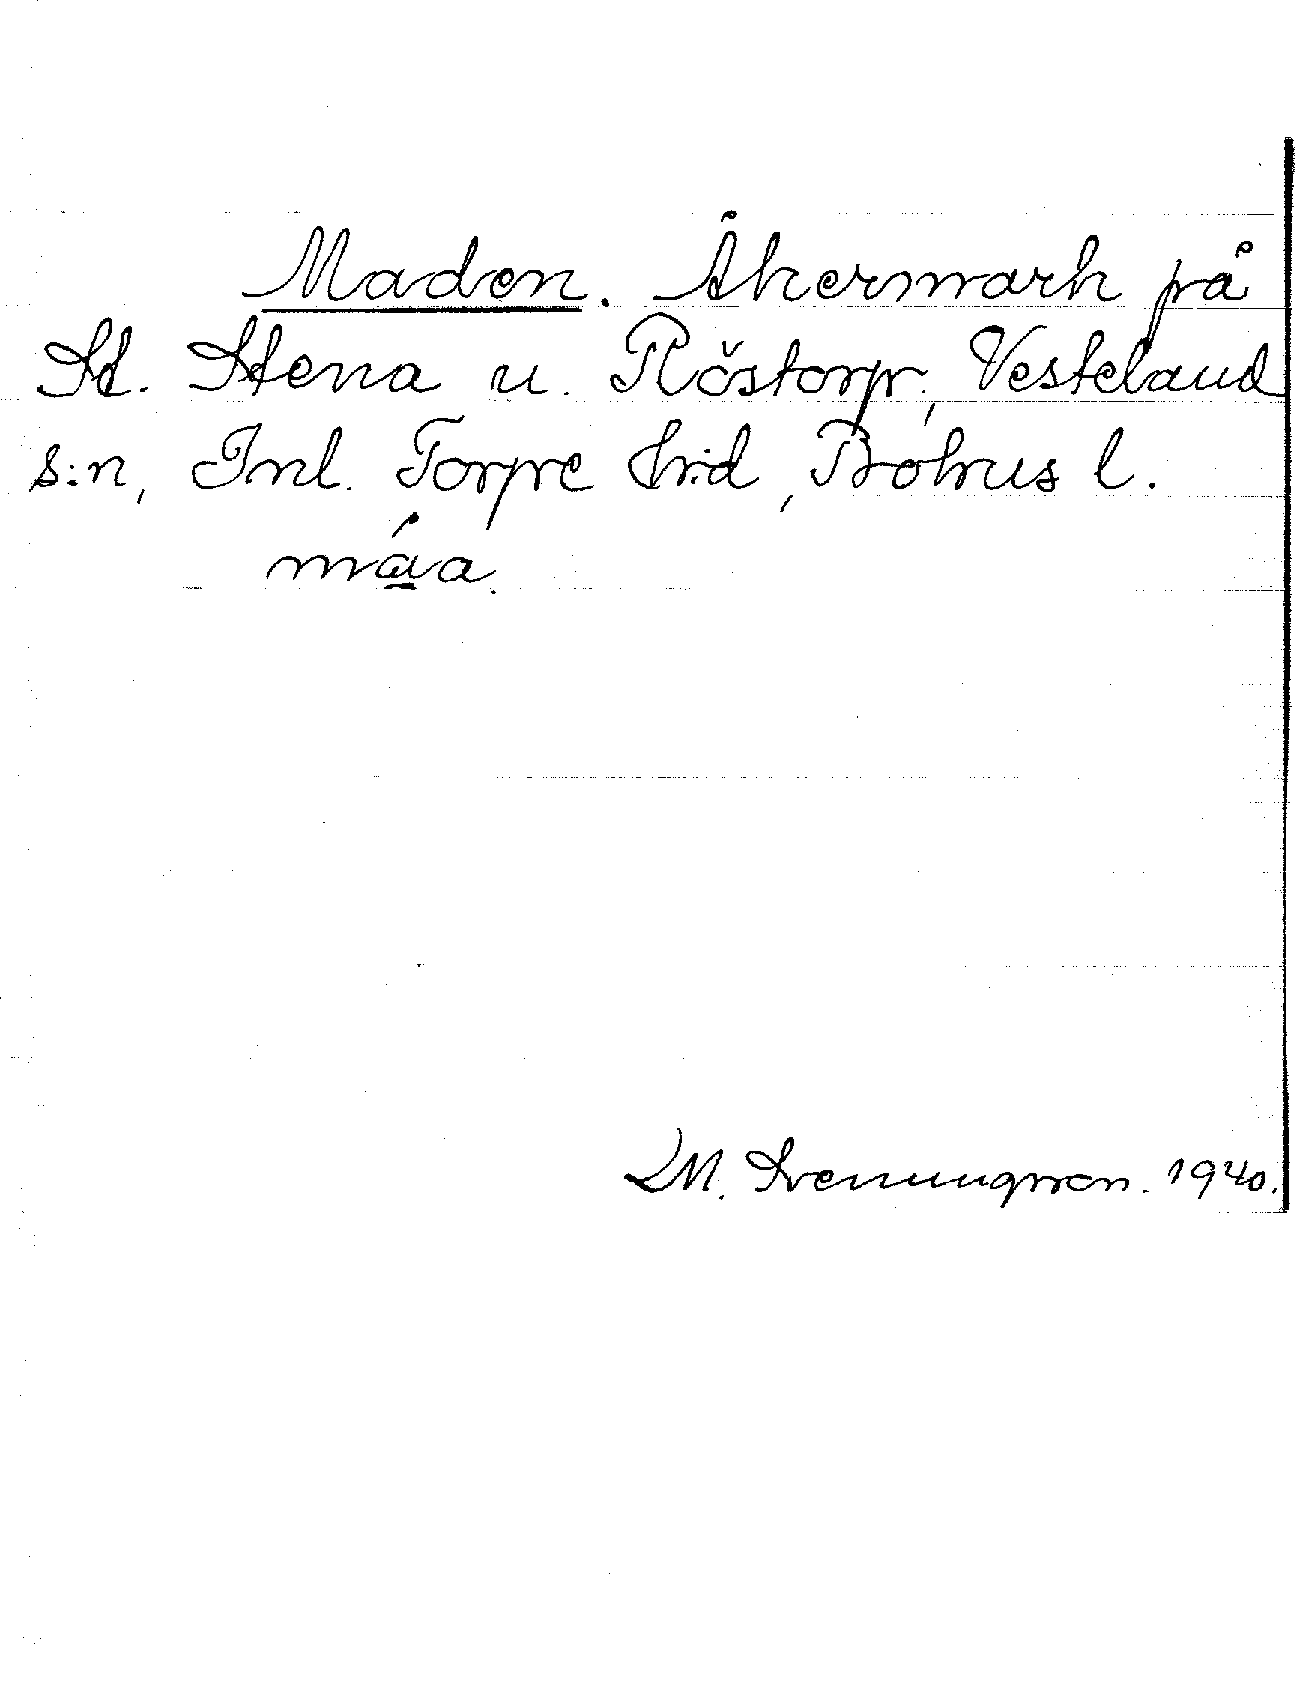 Maden. Åkermark på
St. Stena u. Röstorp, Vesteland
s:n, Inl. Torpe h:d, Bohus l.
måa.
M. Svenungsson. 1940.